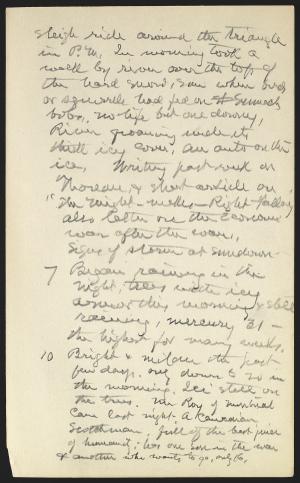 sleigh ride around the triangle
in P.M. In morning took a
walk by river over the top of
the hard snow; saw where birds
or squirrels had fed on sumach
bobs, no life but one downy,
River groaning under its
thick icy cover, an auto on the
ice. Writing past week on
Thoreau, & short article on
"The Might-makes-Right fallacy"
also letter on the Economic
war after the war,
Signs of storm at sundown-
7 Began raining in the
night, trees with icy
armor this morning & still
raining, mercury 31-
the highest for many weeks.
10 Bright & milder the past
few days. only down to 20 in
the morning. Ice still on
the trees. Mr Roy of Montreal
came last night- A Canadian
Scotchman, full of the best juice
of humanity; has one son in the war
& another who wants to go, only 16,